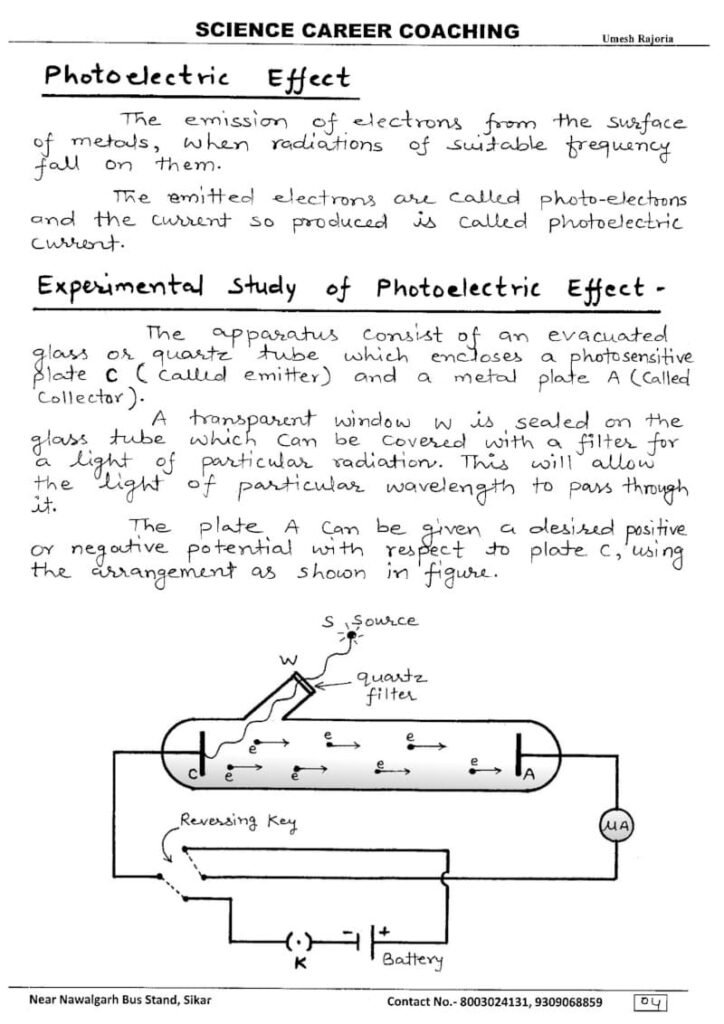 SCIENCE CAREER COACHING
Umesh Rajoria
Photoelectric Effect
The emission of electrons from the surface
of metals, when radiations of suitable frequency
fall on them.
The emitted electrons are called photo-electrons
and the current so produced is called photoelectric
current.
Experimental Study of Photoelectric Effect -
The apparatus consist of an evacuated
glass or quartz tube which encloses a photosensitive
plate C ( called emitter) and a metal plate A (Called
Collector).
A transparent window W is sealed on the
glass tube which can be covered with a filter for
a light of particular radiation. This will allow
the light of particular wavelength to pass through
it.
The plate A can be given a desired positive
or negative potential with respect to plate C, using
the arrangement as shown in figure.
S Source
W
quartz
filter
e e e
C e e e e A
Reversing Key
μA
- +
K Battery
Near Nawalgarh Bus Stand, Sikar
Contact No.- 8003024131, 9309068859
04